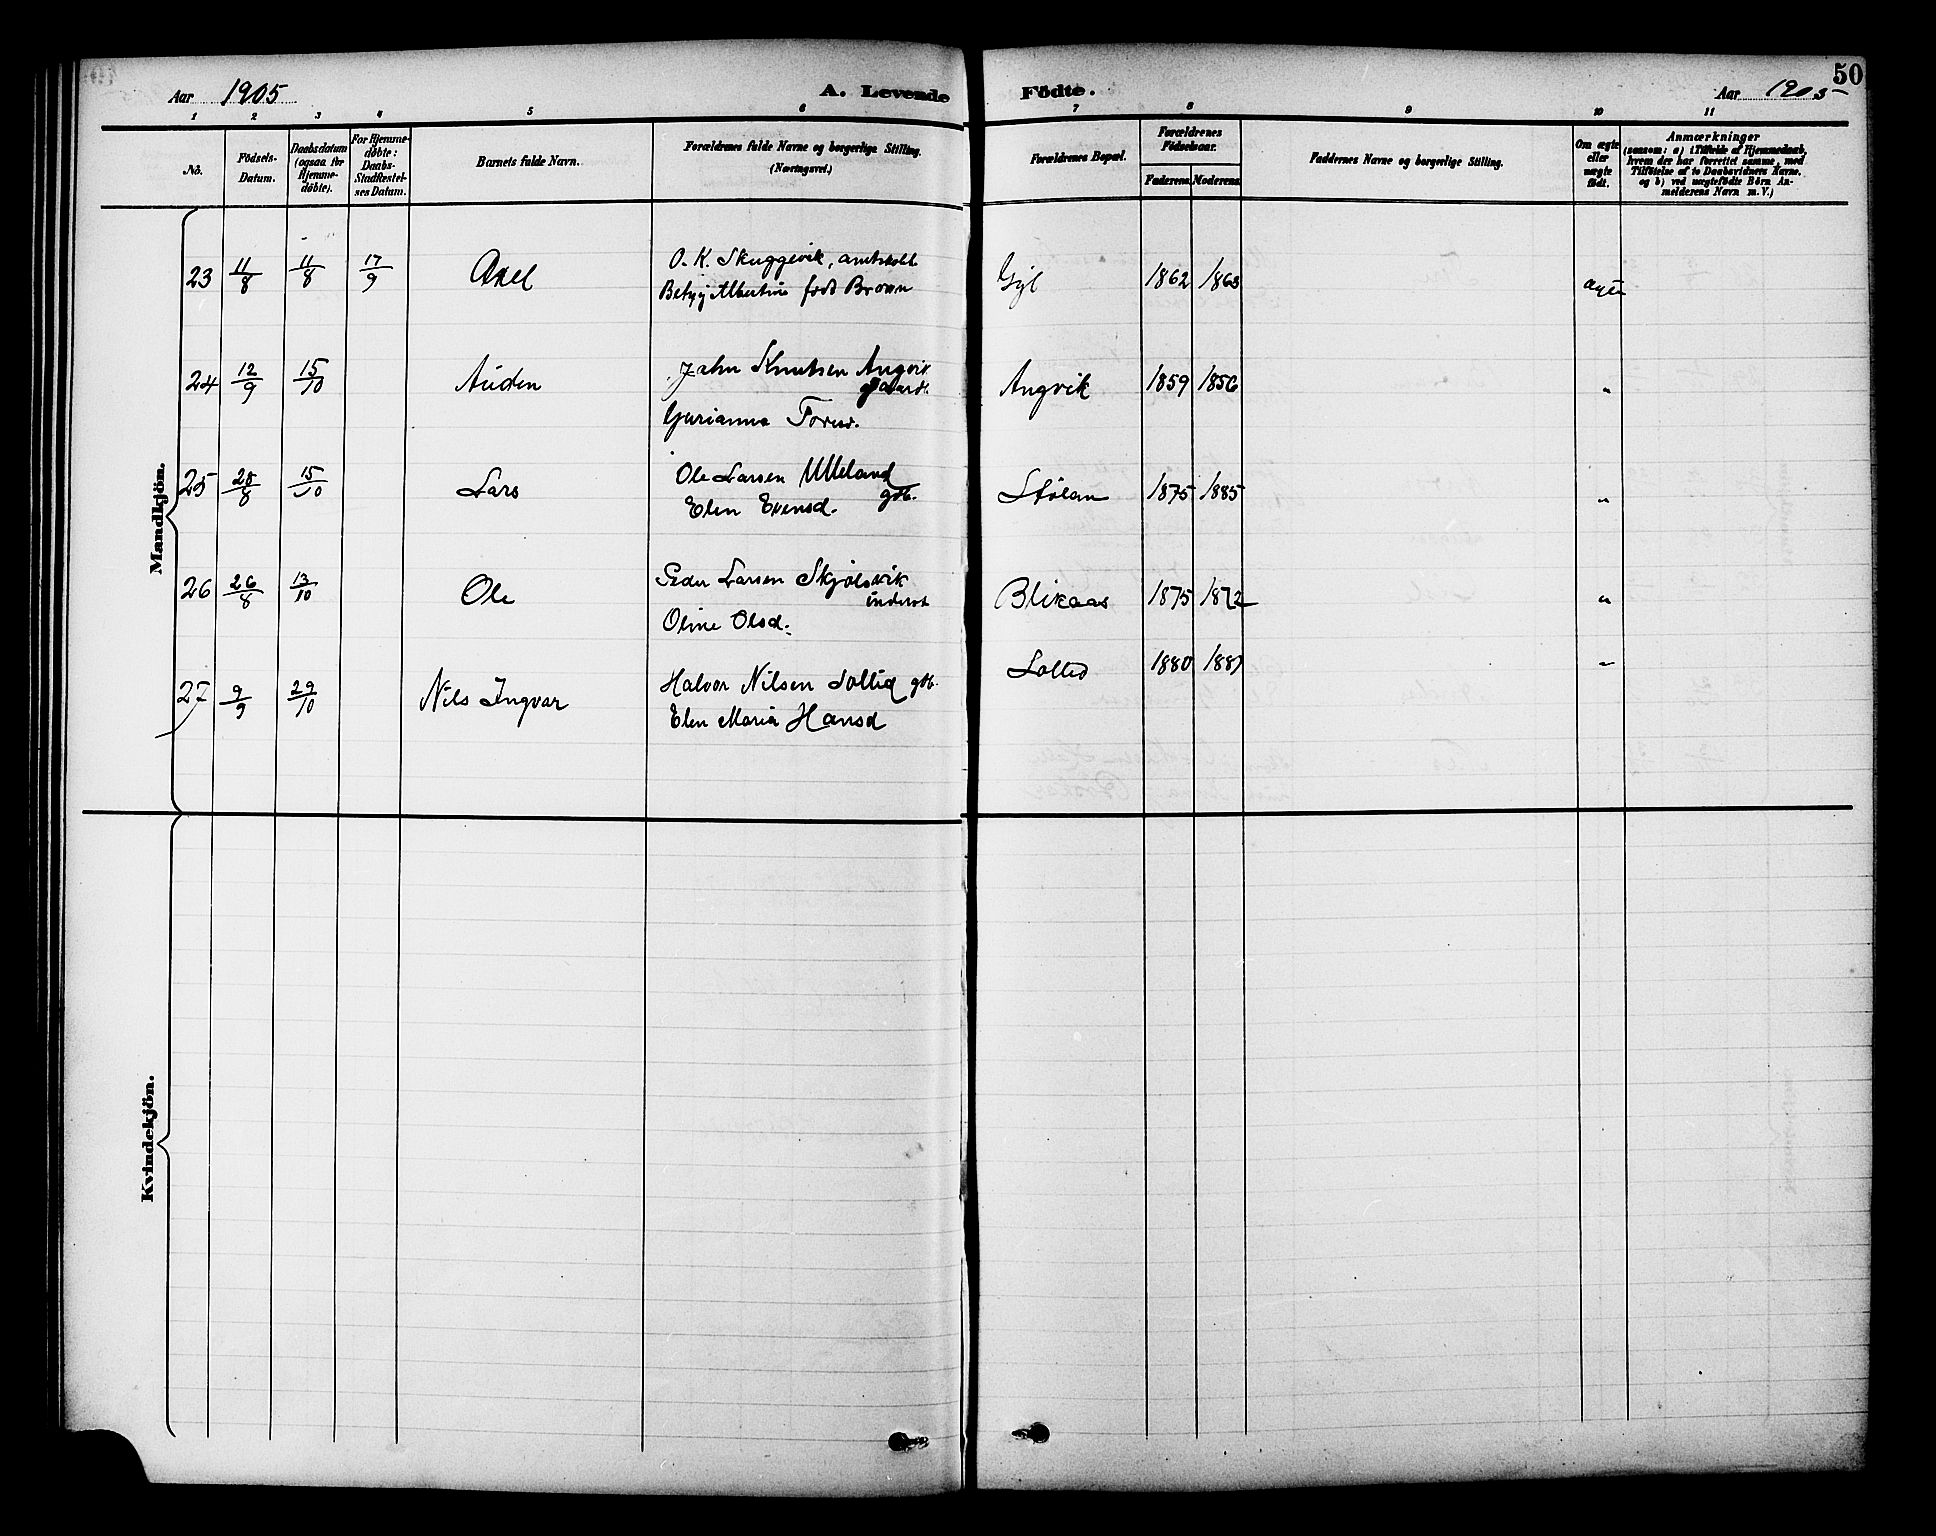 50
Aar 1905 A. Levende Födte. Aar 1905
1 2 3 4 5 6 7 8 9 10 11
No.
Födsels-
Datum.
Daabsdatum
(ogsaa for
Hjemme-
døbte).
For Hjemme-
døbte:
Daabs-
Stadfæstel-
ses Datum.
Barnets fulde Navn.
Forældrenes fulde Navne og borgerlige Stilling.
(Næringsvei.)
Forældrenes Bopæl.
Forældrenes
Födselsaar.
Faderens. Moderens.
Faddernes Navne og borgerlige Stilling.
Om ægte
eller
uægte
födt.
Anmærkninger
(saasom: a) i Tilfælde af Hjemmedaab,
hvem der har forrettet samme, med
Tilföielse af to Daabsvidners Navne,
og b) ved uægtefödte Börn An-
melderens Navn m. V.)
Mandkjön.
23 11/8 11/8 17/9 Axel O. K. Skuggevik, amtskass. Gyl 1862 1863 ægte
Betzy Albertine født Brown
24 12/9 15/10 Auden John Knutsen Angvik Angvik 1859 1856 "
gaardb.
Gurianna Toresd.
25 25/8 15/10 Lars Ole Larsen Ulleland Stølan 1875 1885 "
gdb.
Elen Evensd.
26 26/8 13/10 Ole Peder Larsen Skjølsvik Blikaas 1875 1872 "
inderst
Oline Olsd.
27 9/9 29/10 Nils Ingvar Halvor Nilsen Sollid gdb. Sollid 1880 1881 "
Elen Maria Hansd
Kvindekjön.